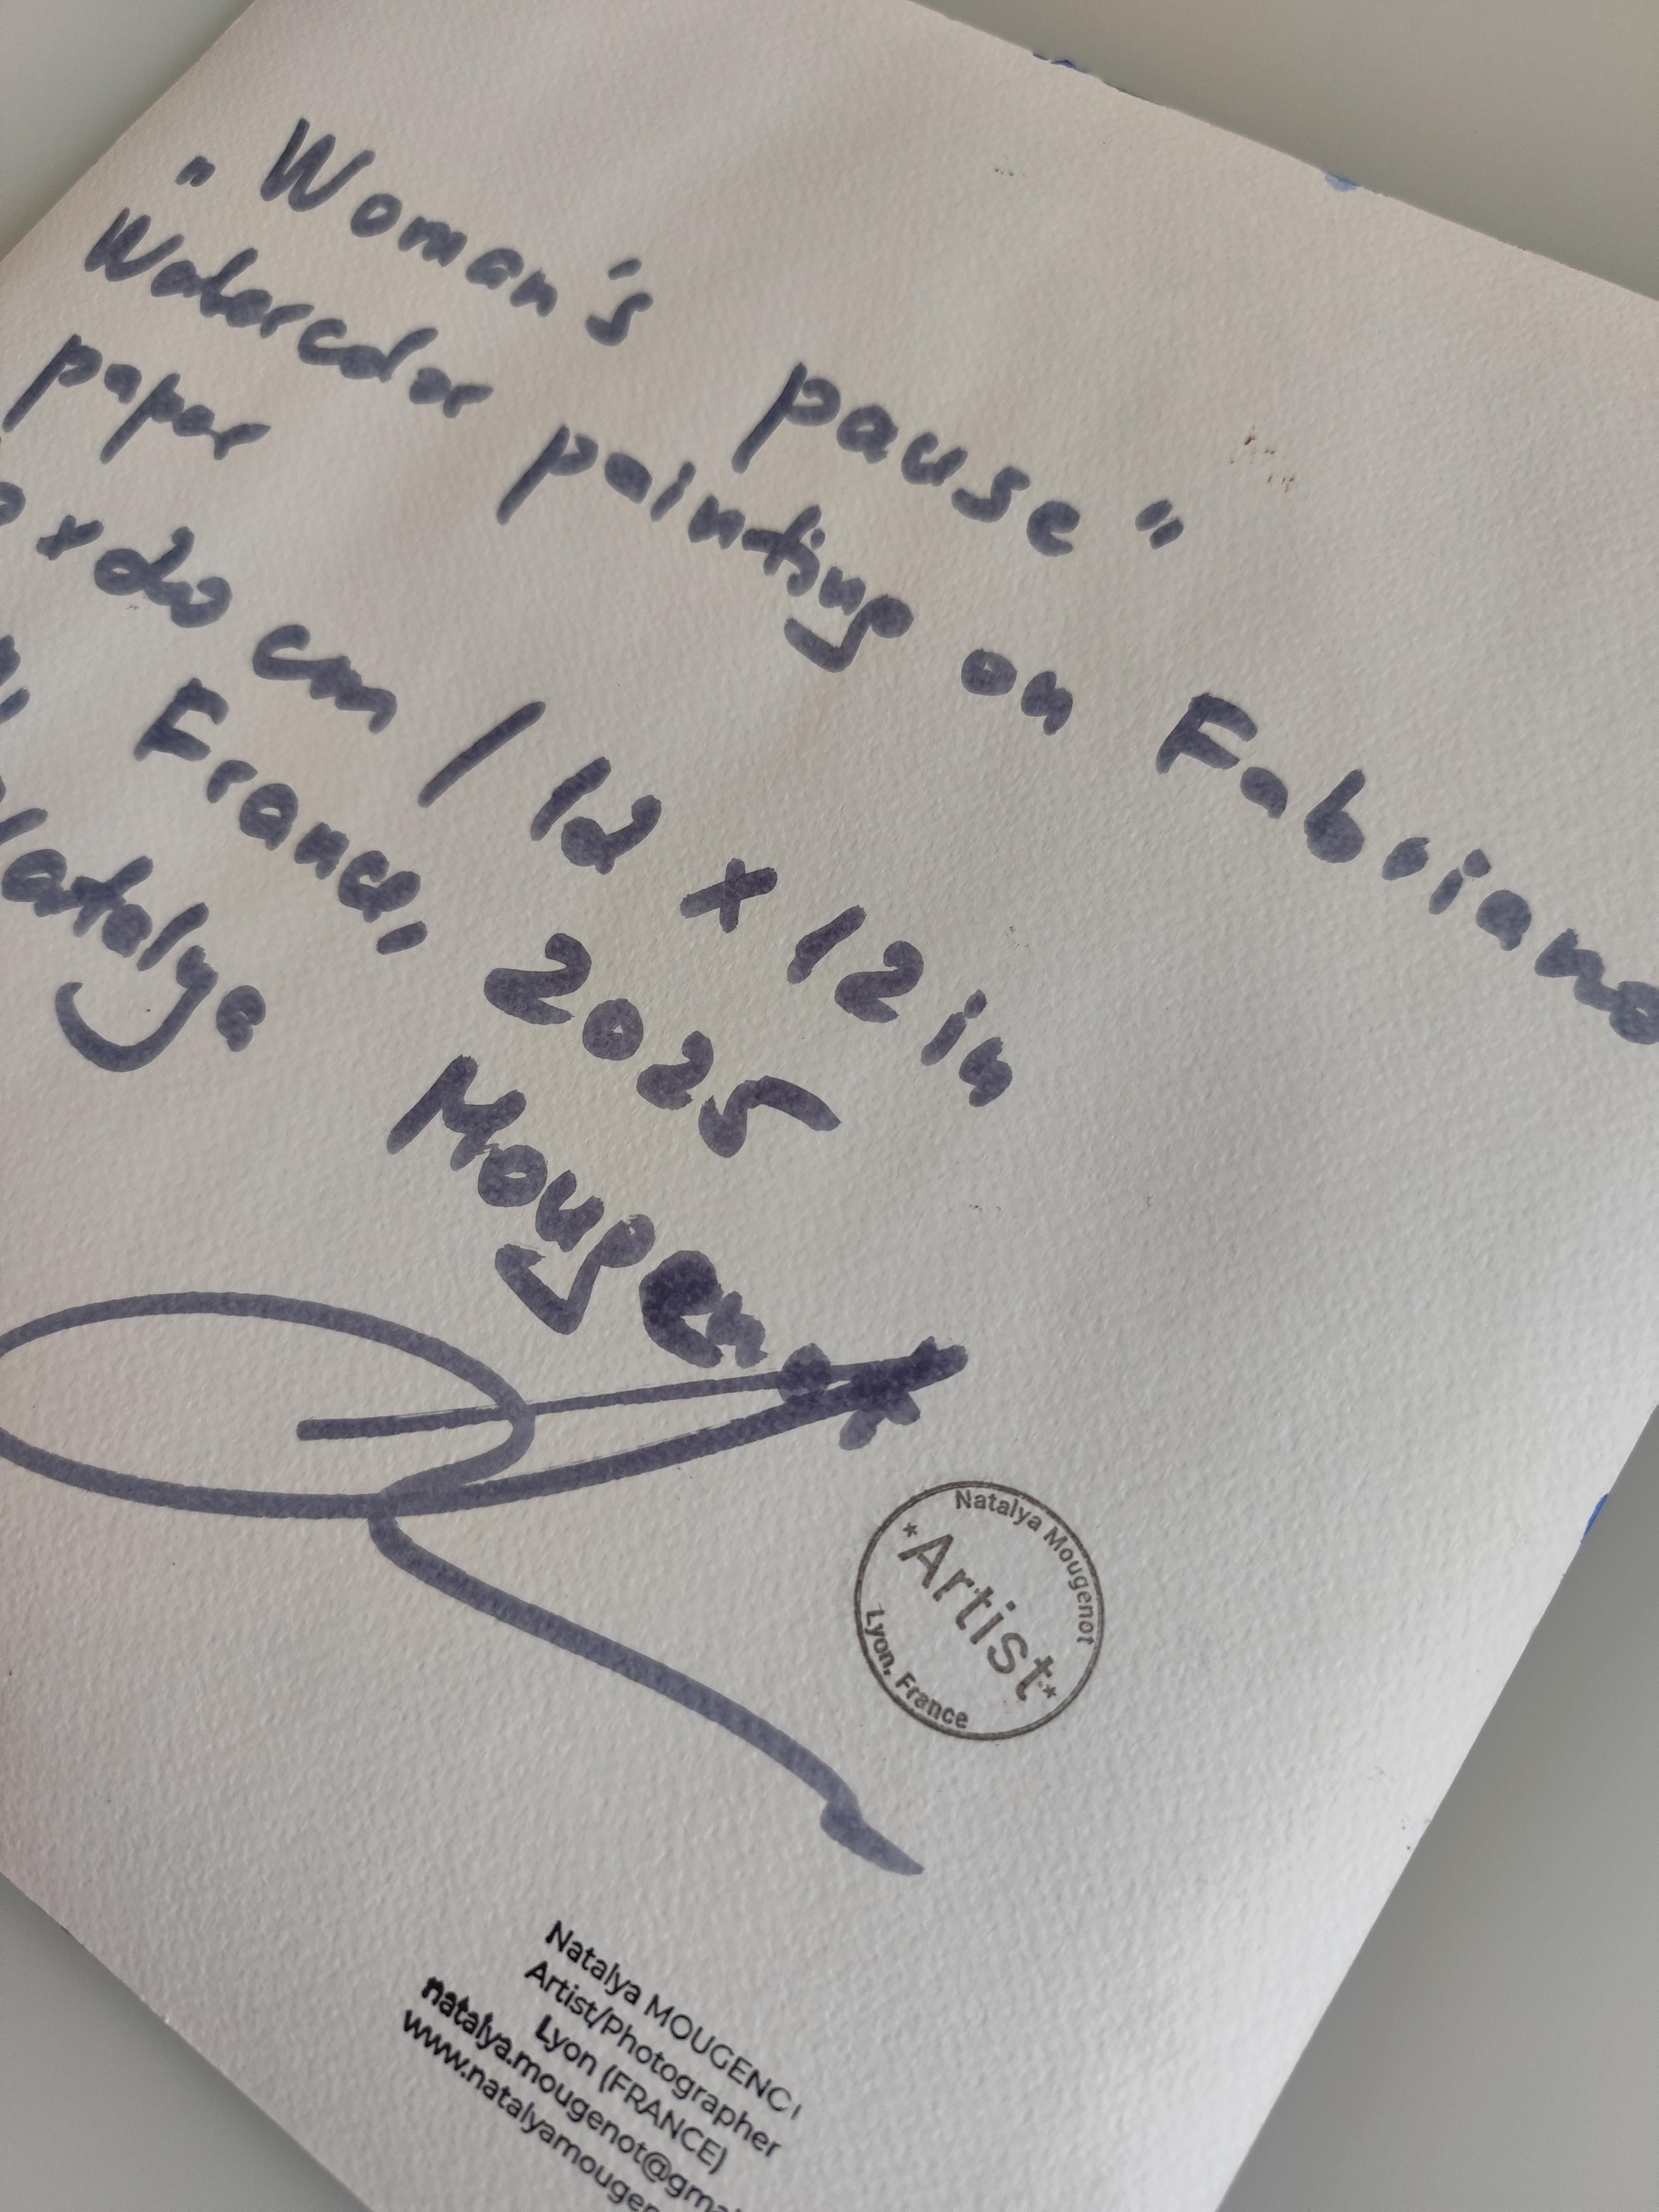 "Woman's pause"
Watercolor painting on Fabriano
paper
cm / 12 x 12 in
France, 2025
Natalya Mougenot
Natalya Mougenot
*Artist*
Lyon, France
Natalya MOUGENO
Artist/Photographer
Lyon (FRANCE)
natalya.mougenot@gmai
www.natalyamougen